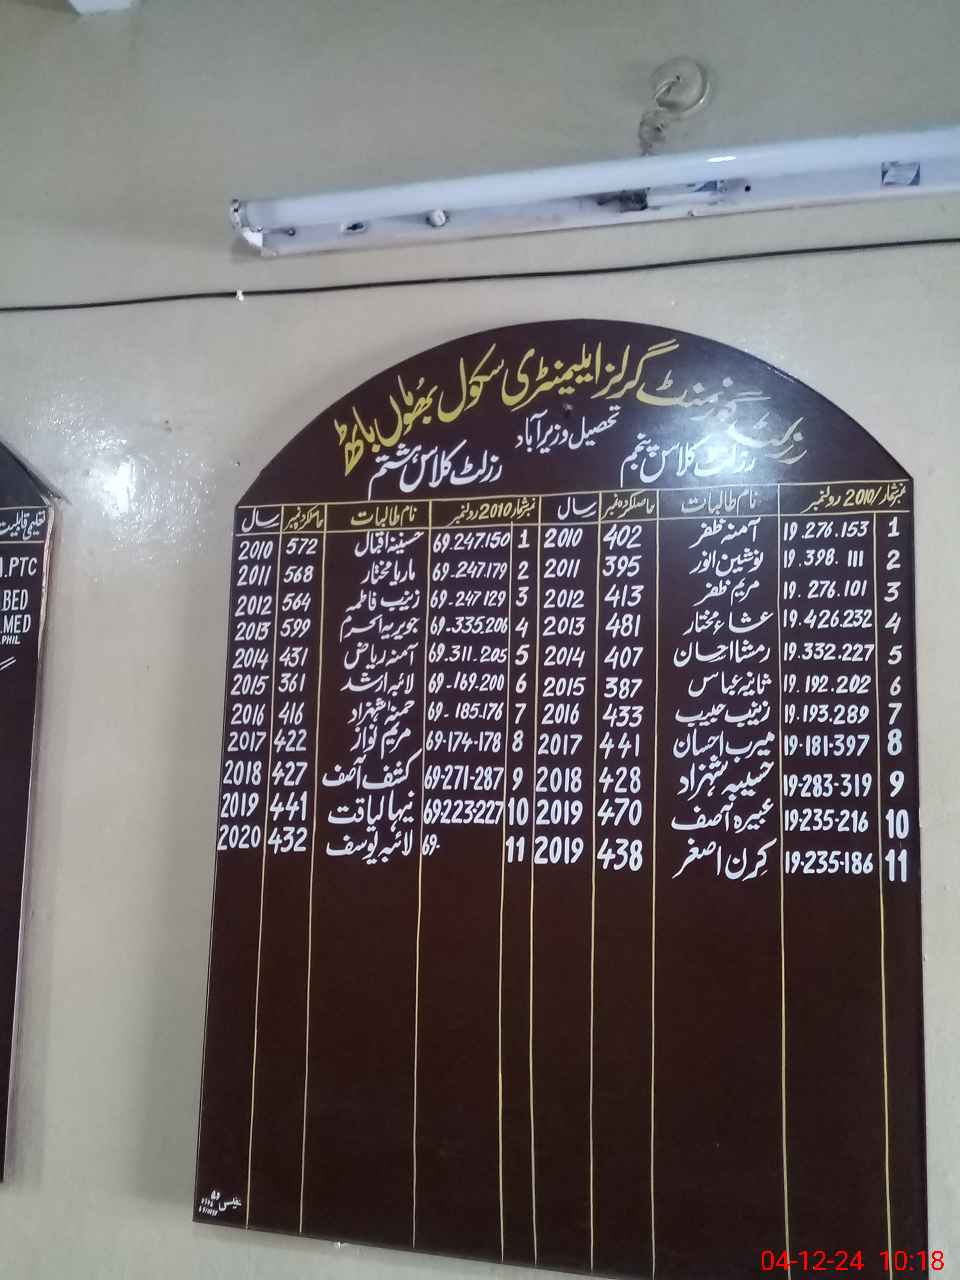 گورنمنٹ گرلز ایلیمنٹری سکول بھُوماں باٹھ
تحصیل وزیرآباد
رزلٹ کلاس پنجم رزلٹ کلاس ہشتم
نمبرشمار 2010/ رولنمبر نام طالبات حاصلکردہ نمبر سال نمبرشمار 2010 رولنمبر نام طالبات حاصلکردہ نمبر سال
1 19.276.153 آمنہ ظفر 402 2010 1 69.247.150 حسینہ اقبال 572 2010
2 19.398.111 نوشین انور 395 2011 2 69.247.179 ماریا مختار 568 2011
3 19.276.101 مریم ظفر 413 2012 3 69-247.129 زینب فاطمہ 564 2012
4 19.426.232 عشاء مختار 481 2013 4 69-335.206 جویریہ اکرم 599 2013
5 19.332.227 رمشا احسان 407 2014 5 69.311.205 آمنہ ریاض 431 2014
6 19.192.202 ثانیہ عباس 387 2015 6 69-169.200 لائبہ ارشد 361 2015
7 19.193.289 زینب حبیب 433 2016 7 69-185.176 حمنہ شہزاد 416 2016
8 19-181-397 میرب احسان 441 2017 8 69-174-178 مریم نواز 422 2017
9 19-283-319 حسیبہ شہزاد 428 2018 9 69-271-287 کشف آصف 427 2018
10 19-235-216 عبیرہ آصف 470 2019 10 69-223-227 نیہا لیاقت 441 2019
11 19-235-186 کرن اصغر 438 2019 11 69- لائبہ یوسف 432 2020
تعلیمی قابلیت
PTC
BED
MED
PHIL
نفیس
04-12-24 10:18